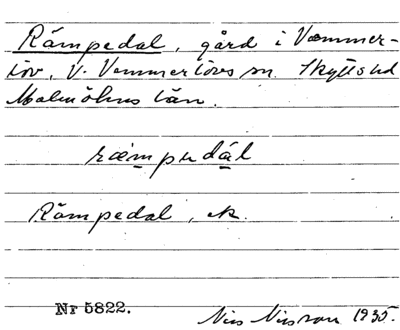 Rämpedal, gård i Vemmer-
löv, V. Vemmerlövs sn. Skytts hd
Malmöhus län.
ræmpedál
Rämpedal, ek.
Nr 5822.
Nils Nilsson 1935.